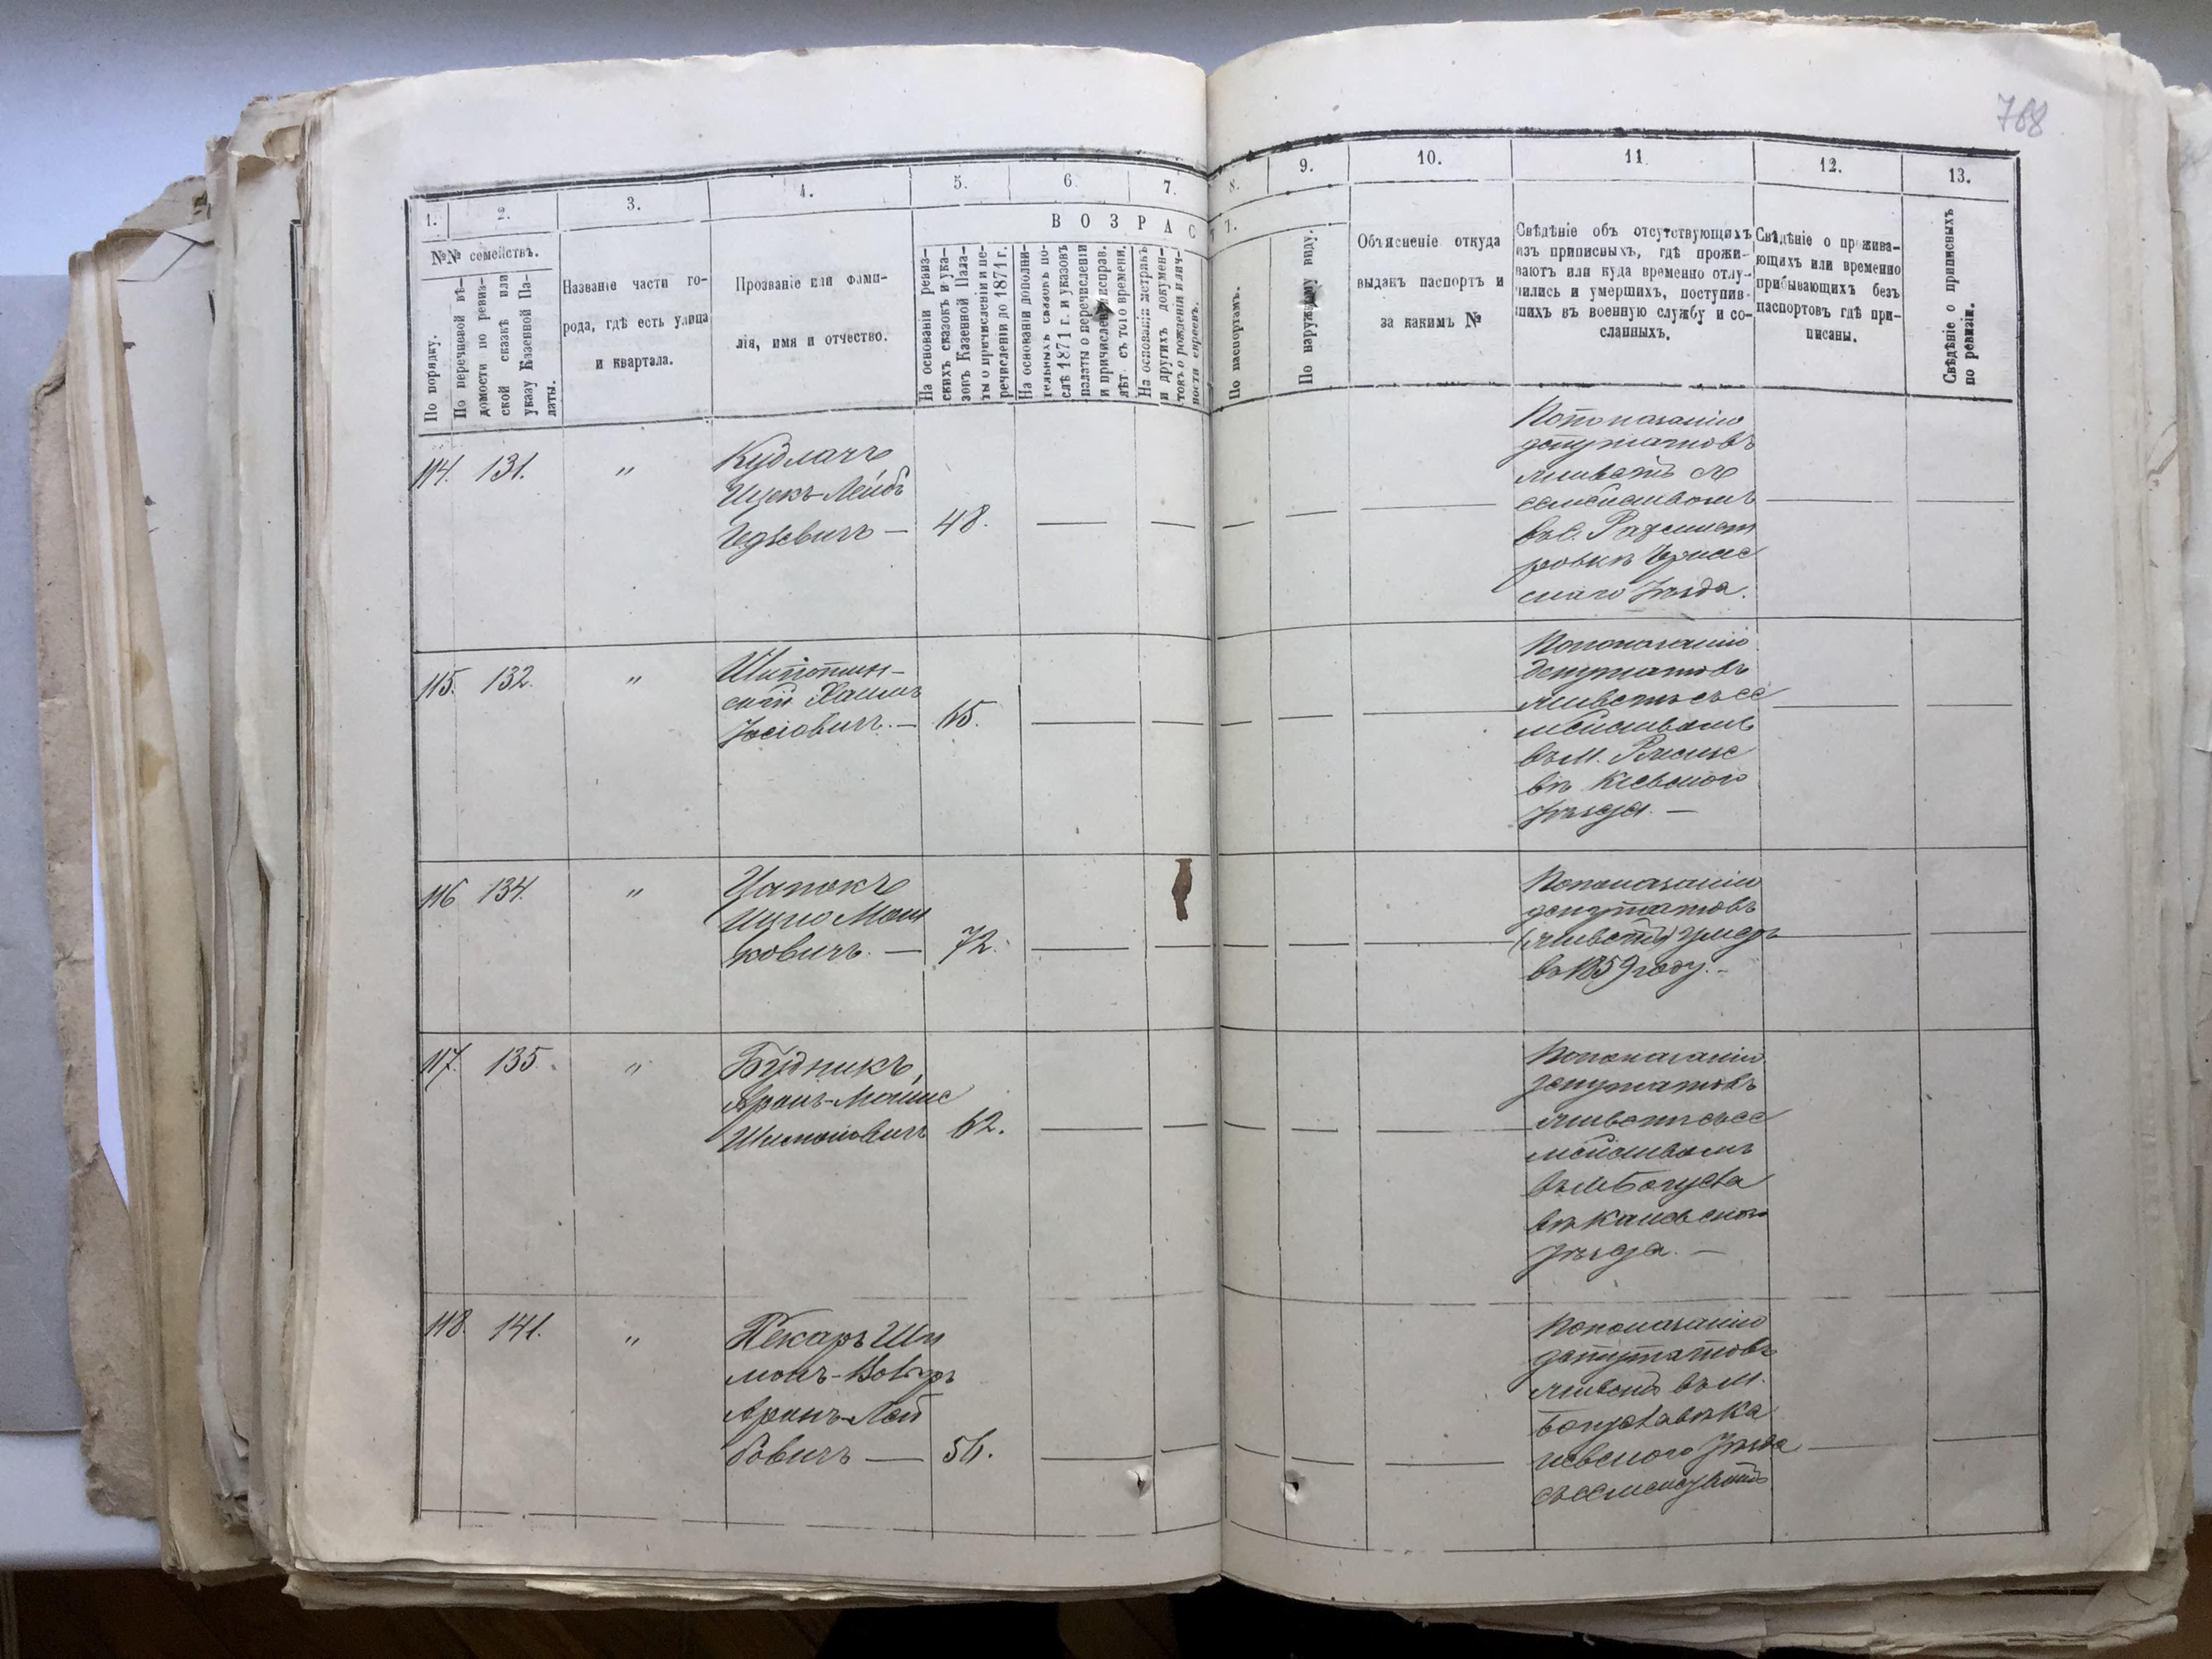 768
1.
2.
3.
4.
5.
6.
7.
8.
9.
10.
11.
12.
13.
ВОЗРАС
Т Ъ.
№№ семействъ.
По порядку.
По перечневой вѣ-
домости по ревиз-
ской сказкѣ или
указу Казенной Па-
латы.
Названіе части го-
рода, гдѣ есть улица
и квартала.
Прозваніе или фами-
лія, имя и отчество.
На основаніи ревиз-
скихъ сказокъ и ука-
зовъ Казенной Пала-
ты о причисленіи и пе-
речисленіи до 1871 г.
На основаніи дополни-
тельныхъ сказокъ по-
слѣ 1871 г. и указовъ
палаты о перечисленіи
и причисленіи исправ.
лѣт. съ того времени.
На основаніи метрикъ
и другихъ докумен-
токъ о рожденіи и лич-
ности евреевъ.
По паспортамъ.
По наружному виду.
Объясненіе откуда
выданъ паспортъ и
за какимъ №
Свѣдѣніе объ отсутствующихъ
изъ приписныхъ, гдѣ прожи-
ваютъ или куда временно отлу-
чились и умершихъ, поступив-
шихъ въ военную службу и со-
сланныхъ.
Свѣдѣніе о прожива-
ющихъ или временно
прибывающихъ безъ
паспортовъ гдѣ при-
писаны.
Свѣдѣніе о приписныхъ
по ревизіи.
114. 131. "
Кудлачъ
Ицекъ-Лейбъ
— 48.
По показанію
депутатовъ
живетъ съ
семействомъ
въ с.
скаго Уѣзда.
115. 132. "
ский Хаимъ
Іосіовичъ. — 65.
По показанію
депутатовъ
живетъ съ се
мействомъ
въ м. Ржище
вѣ Кіевского
Уѣзда. —
116 134. "
Цапокъ
Мош
ковичъ. — 72.
По показанію
депутатовъ
(живетъ) умеръ
въ 1859 году. -
117. 135. "
Будникъ,
Аронъ-Мойше
Шимоновичъ 62.
По показанію
депутатовъ
живетъ съ се
мействомъ
въ м. Богусла
вѣ Каневского
Уѣзда. —
118. 141. "
Пекаръ Ши
монъ-Волъръ
Аронъ-Лей
бовичъ — 56.
По показанію
депутатовъ
живетъ въ м.
Богуславѣ Ка
невского Уѣзда